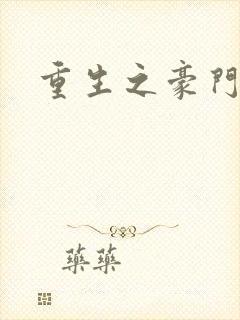 重生之豪門
藥藥